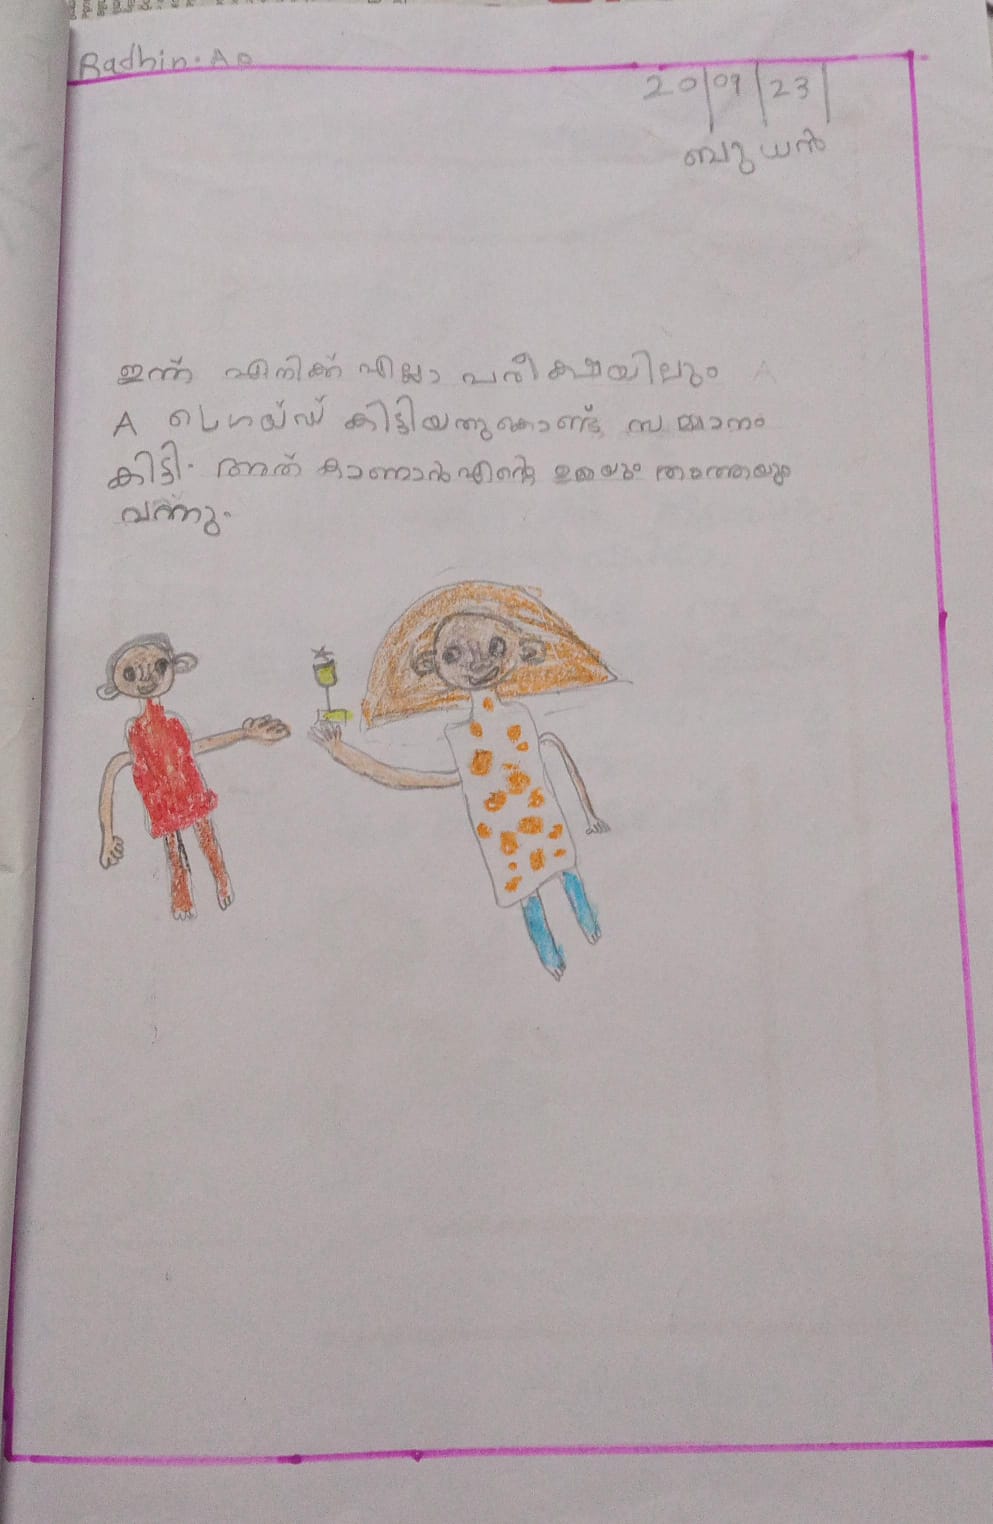 Radhin. A P
20/09/23
ബുധൻ
ഇന്ന് എനിക്ക് എല്ലാ പരീക്ഷയിലും
A ഗ്രേയ്ഡ് കിട്ടിയതുകൊണ്ട് സമ്മാനം
കിട്ടി. അത് കാണാൻ എന്റെ ഉമ്മയും താത്തയും
വന്നു.